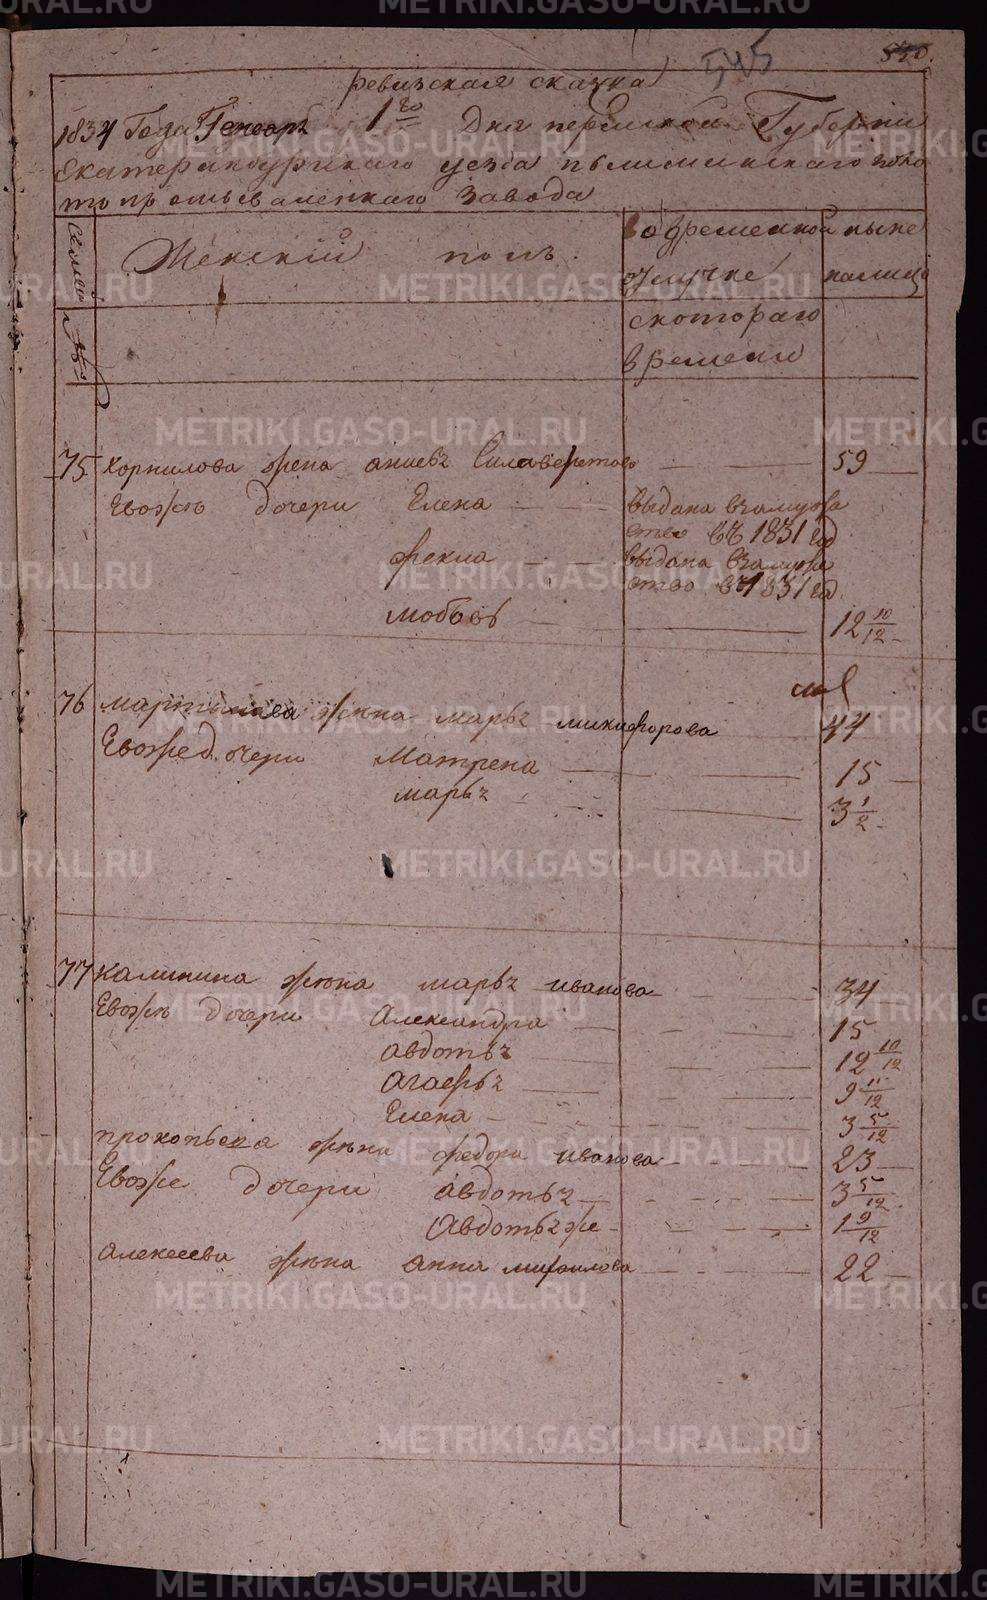 545
ревизская сказка
1834 Года Генваря 1го Дня пермской Губернии
Екатеринбургскаго уезда пышминскаго золо
топромываленнаго Завода
Семьи №
Женский полъ
во временной отлучке
ныне налицо
скотораго
времени
75 Корнилова жена 59
Евожъ дочери Елена выдана взамуже
ство въ 1831 год
фекла выдана взамуже
ство въ 1831 год
любовь 12 10/12
76 мартинова жена марья никифорова 44
Евоже дочери Матрена 15
марья 3 1/2
77 калинина жена марья иванова 34
Евожъ дочери Александра 15
авдотья 12 10/12
агафья 9 11/12
Елена 3 5/12
прокопьева жена федора иванова 23
Евоже дочери авдотья 3 5/12
Авдотья же 1 9/12
алексеева жена анна михаилова 22
METRIKI.GASO-URAL.RU